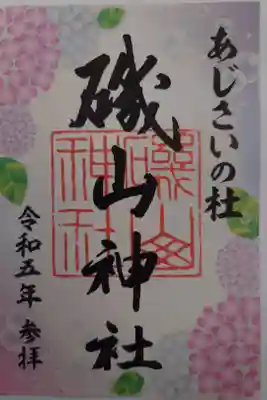 あじさいの杜
磯山神社
令和五年 参拝
磯山
神社